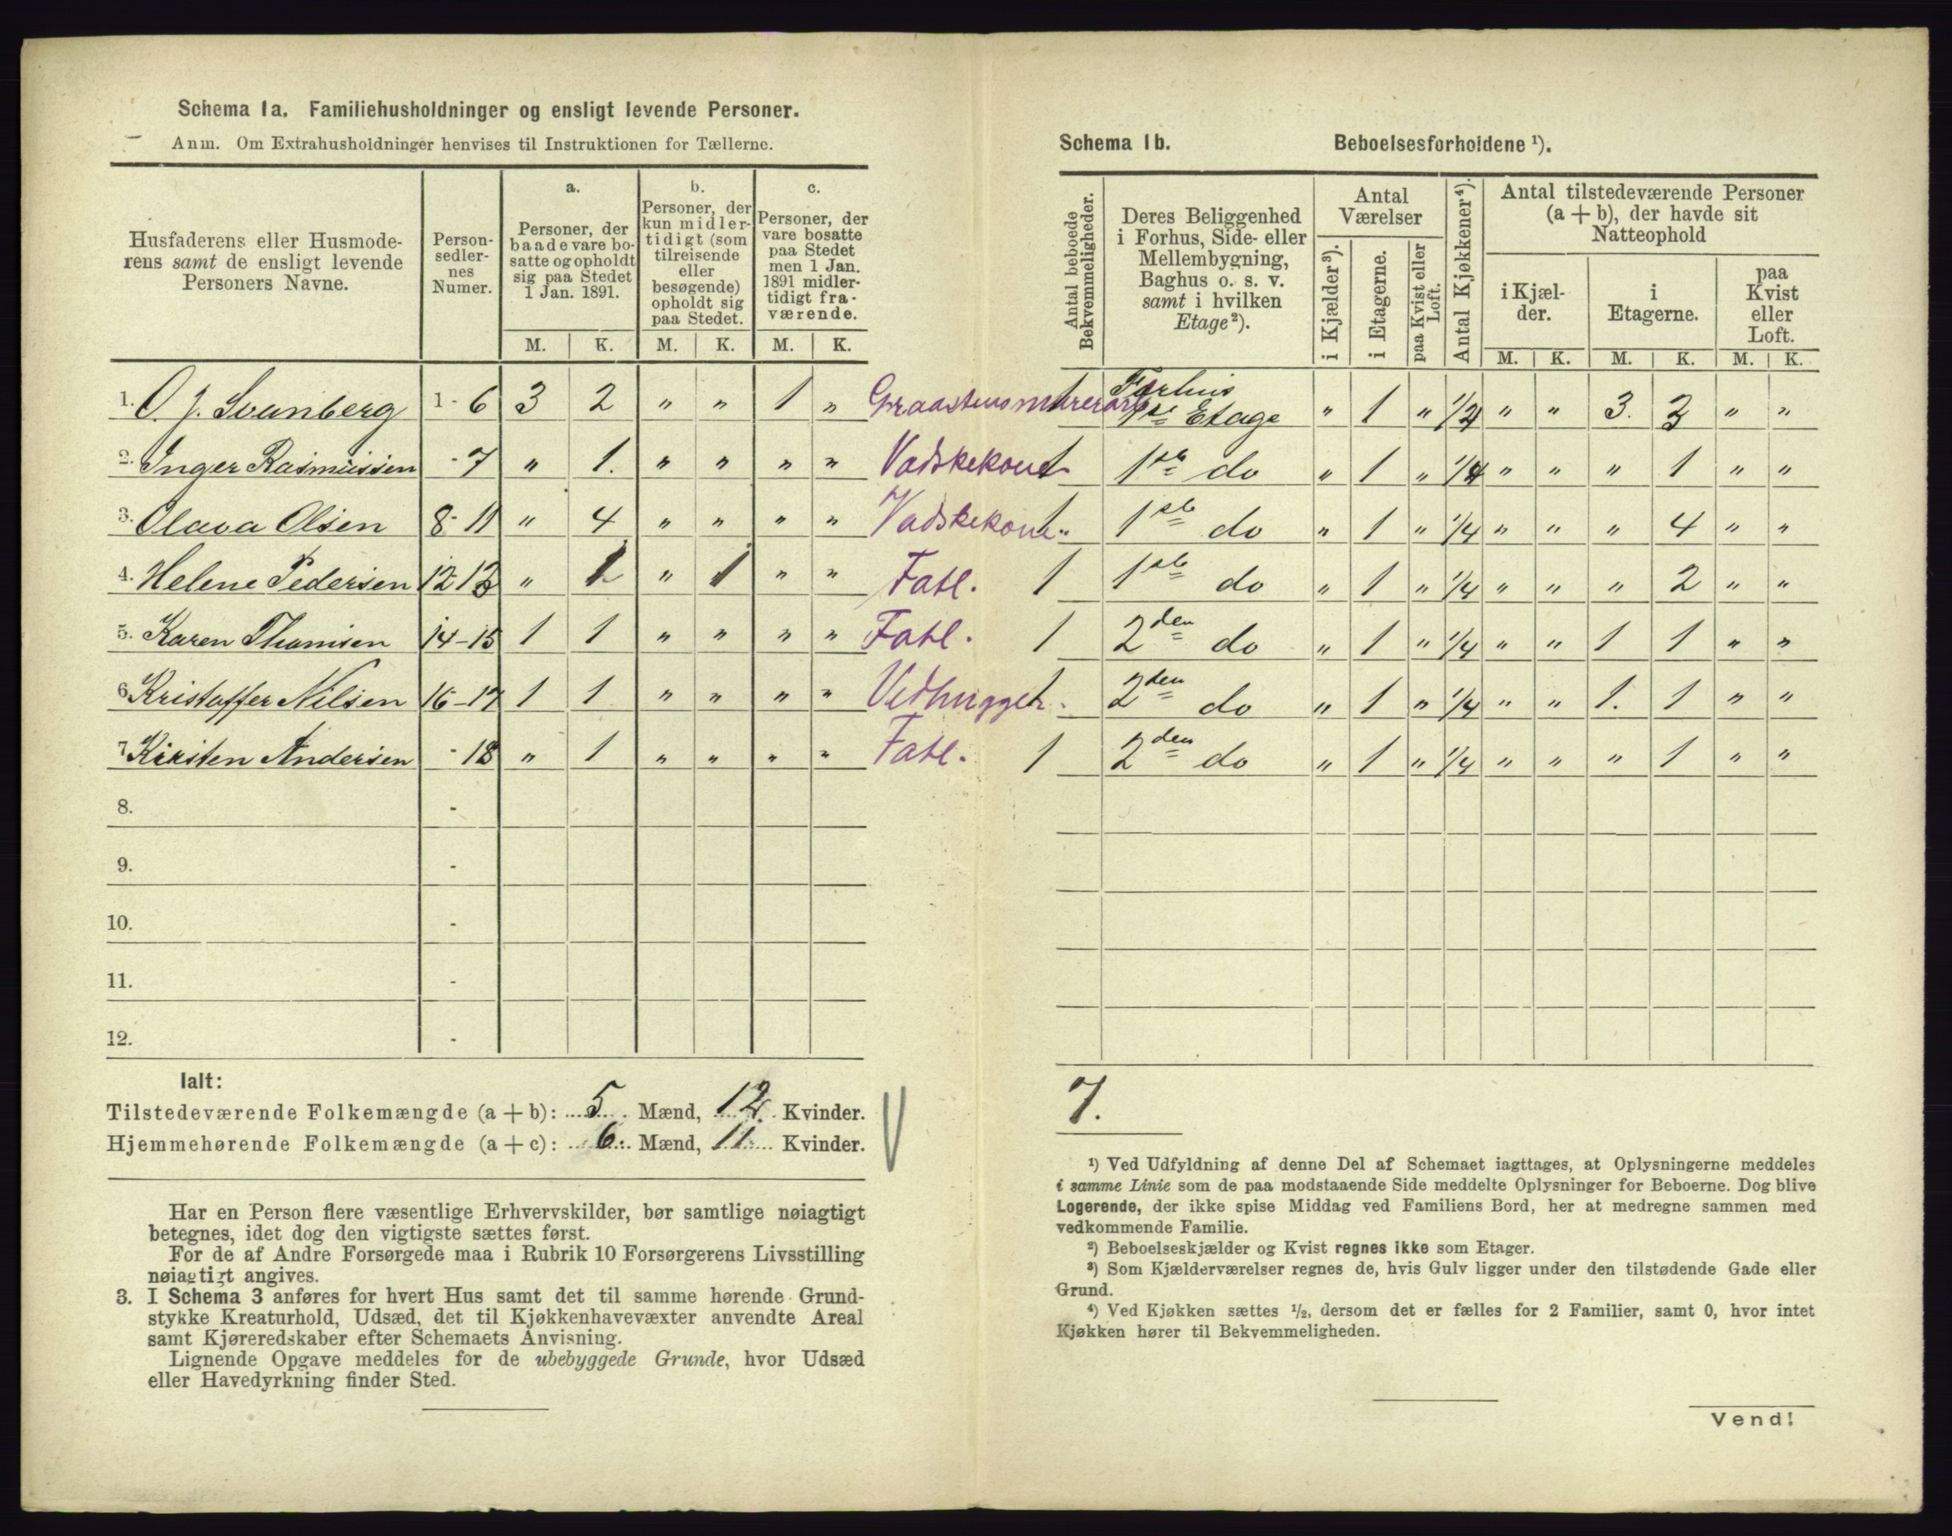 Schema 1a. Familiehusholdninger og ensligt levende Personer.
Anm. Om Extrahusholdninger henvises til Instruktionen for Tællerne.
Husfaderens eller Husmoderens samt de ensligt levende Personers Navne.
Personsedlernes Numer.
a. Personer, der baade vare bosatte og opholdt sig paa Stedet 1 Jan. 1891.
b. Personer, der kun midlertidigt (som tilreisende eller besøgende) opholdt sig paa Stedet.
c. Personer, der vare bosatte paa Stedet men 1 Jan. 1891 midlertidigt fraværende.
M. K. M. K. M. K.
1. O. J. Svanberg 1-6 3 2 " " 1 " Graastensmurerarb
2. Inger Rasmussen -7 " 1. " " " " Vadskekone
3. Olava Olsen 8-11 " 4 " " " " Vadskekone
4. Helene Pedersen 12-13 " 1 " 1 " " Fatl.
5. Karen Thomsen 14-15 1 1 " " " " Fatl.
6. Kristoffer Nilsen 16-17 1 1 " " " " Vedhugger
7. Kirsten Andersen -18 " 1 " " " " Fatl.
8. -
9. -
10. -
11. -
12. -
Ialt:
Tilstedeværende Folkemængde (a + b): 5 Mænd, 12 Kvinder.
Hjemmehørende Folkemængde (a + c): 6 Mænd, 11 Kvinder.
Har en Person flere væsentlige Erhvervskilder, bør samtlige nøiagtigt
betegnes, idet dog den vigtigste sættes først.
For de af Andre Forsørgede maa i Rubrik 10 Forsørgerens Livsstilling
nøiagtigt angives.
3. I Schema 3 anføres for hvert Hus samt det til samme hørende Grund-
stykke Kreaturhold, Udsæd, det til Kjøkkenhavevæxter anvendte Areal
samt Kjøreredskaber efter Schemaets Anvisning.
Lignende Opgave meddeles for de ubebyggede Grunde, hvor Udsæd
eller Havedyrkning finder Sted.
Schema 1b. Beboelsesforholdene ¹).
Antal beboede Bekvemmeligheder.
Deres Beliggenhed i Forhus, Side- eller Mellembygning, Baghus o. s. v. samt i hvilken Etage²).
Antal Værelser
i Kjælder³).
i Etagerne.
paa Kvist eller Loft.
Antal Kjøkkener⁴).
Antal tilstedeværende Personer (a + b), der havde sit Natteophold
i Kjælder. i Etagerne. paa Kvist eller Loft.
M. K. M. K. M. K.
1 Forhus 1ste Etage " 1 " 1/4 " " 3. 2 " "
1 1ste do " 1 " 1/4 " " " 1 " "
1 1ste do " 1 " 1/4 " " " 4 " "
1 1ste do " 1 " 1/4 " " " 2 " "
1 2den do " 1 " 1/4 " " 1 1 " "
1 2den do " 1 " 1/4 " " 1. 1 " "
1 2den do " 1 " 1/4 " " " 1 " "
7.
¹) Ved Udfyldning af denne Del af Schemaet iagttages, at Oplysningerne meddeles
i samme Linie som de paa modstaaende Side meddelte Oplysninger for Beboerne. Dog blive
Logerende, der ikke spise Middag ved Familiens Bord, her at medregne sammen med
vedkommende Familie.
²) Beboelseskjælder og Kvist regnes ikke som Etager.
³) Som Kjælderværelser regnes de, hvis Gulv ligger under den tilstødende Gade eller
Grund.
⁴) Ved Kjøkken sættes ½, dersom det er fælles for 2 Familier, samt 0, hvor intet
Kjøkken hører til Bekvemmeligheden.
Vend!